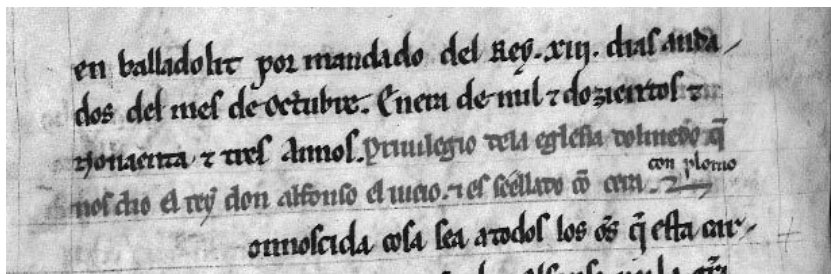 en balladolit por mandado del Rey. xiij. dias anda
dos del mes de Octubre. Enera de mil ⁊ dozientos ⁊
Nonaenta ⁊ tres Annos. Priuilegio dela eglesia q̄
nos dio el rey don alfonso el uieio. ⁊ es seellado cō cera. con plomo
onnoscida cosa sea atodos los õs q̄ esta car